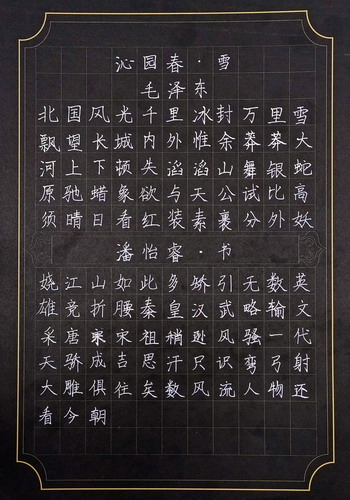 沁园春·雪
毛泽东
北国风光千里冰封万里雪
飘望长城内外惟余莽莽大
河上下顿失滔滔山舞银蛇
原驰蜡象欲与天公试比高
须晴日看红装素裹分外妖
潘怡睿·书
娆江山如此多娇引无数英
雄竞折腰秦皇汉武略输文
采唐宗宋祖稍逊风骚一代
天骄成吉思汗只识弯弓射
大雕俱往矣数风流人物还
看今朝